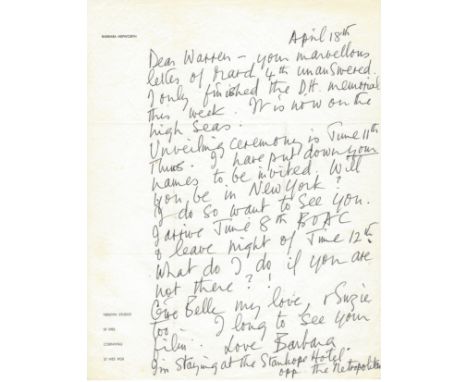 BARBARA HEPWORTH
April 18th
Dear Warren – your marvellous
letter of March 4th unanswered.
I only finished the D.H. memorial
this week. It is now on the
high Seas.
Unveiling ceremony is June 11th
Thurs. I have put down your
names to be invited. Will
you be in New York?
I do so want to see you.
I arrive June 8th BOAC
& leave night of June 12th.
What do I do if you are
not there?!
Give Belle my love, & Suzie
too – I long to see your
film. Love Barbara
I'm Staying at the Stanhope Hotel
opp the Metropolitan
TREWYN STUDIO
ST IVES
CORNWALL
ST IVES